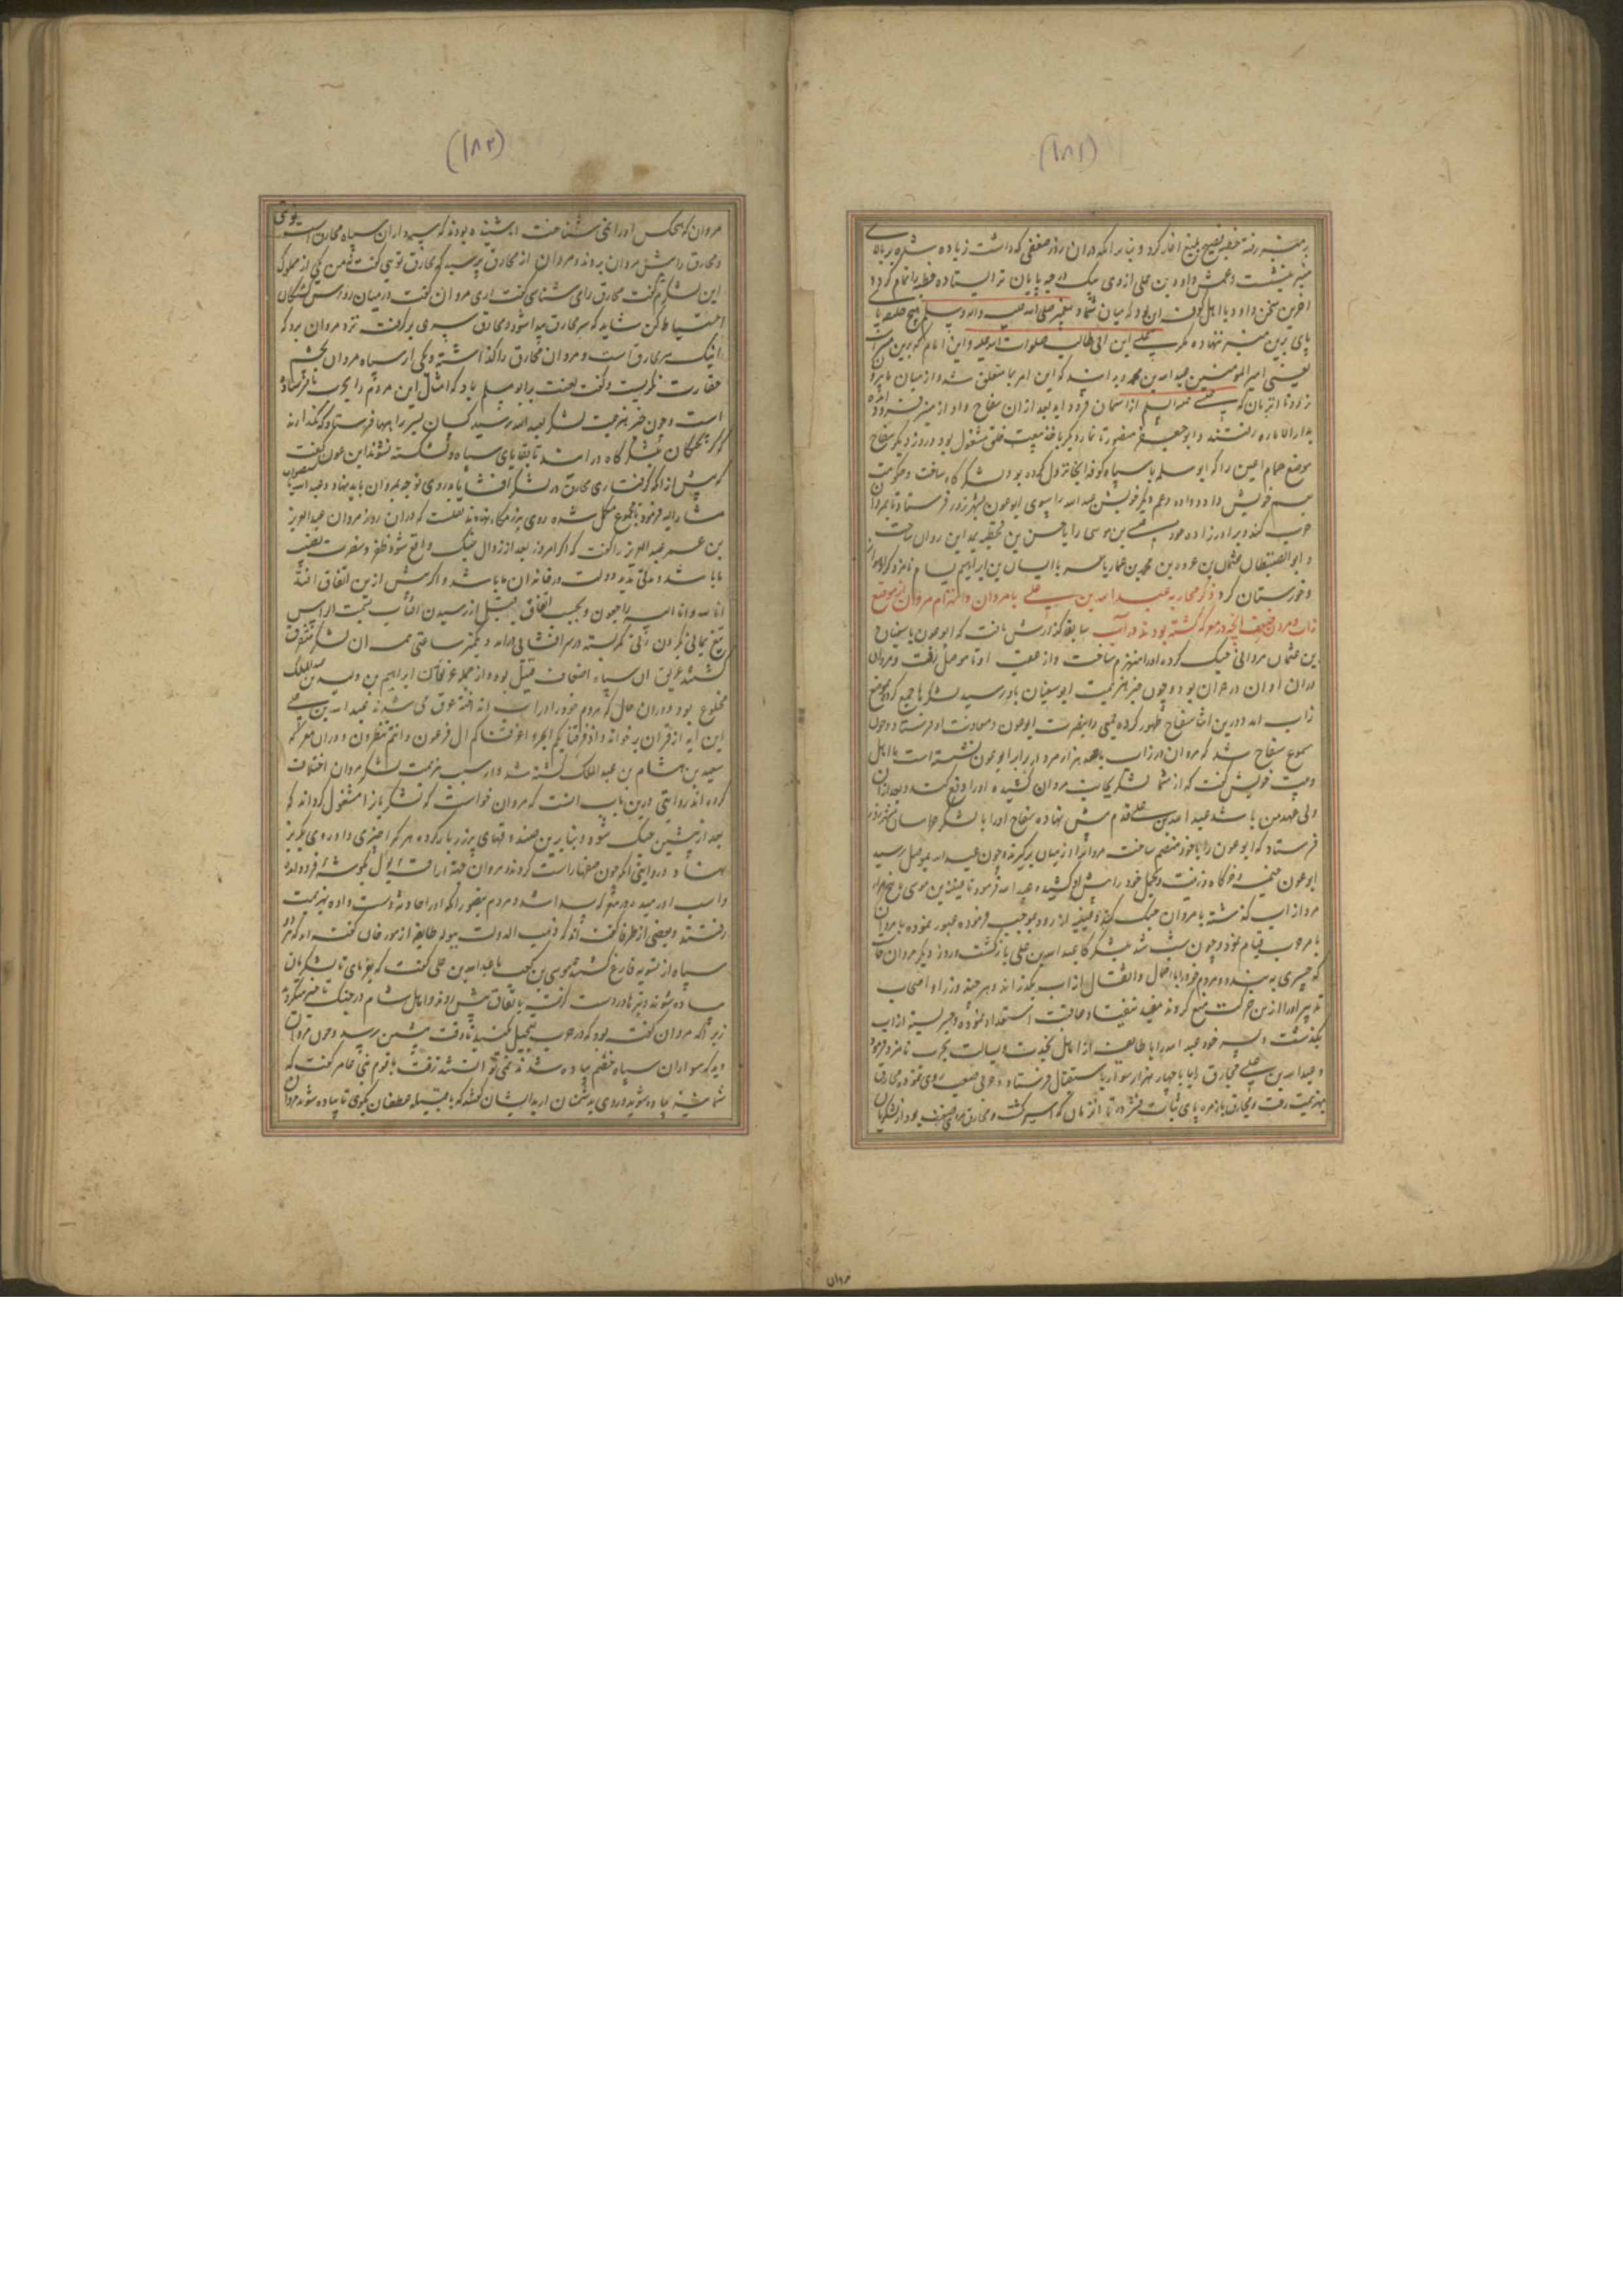 (۱۸۱)
بر منبر رفته خطبه فصیح بلیغ اغاز کرد و بنابر انکه دران روز ضعفی که داشت زیاده شده بر بالای
منبر بنشست و عمش داود بن علی ازوی یک درجه پایان تر ایستاده خطبه را تمام کرد و
اخرین سخن داود با اهل کوفه ان بود که میان شما و پیغمبر صلی الله علیه واله وسلم هیچ خلیفه پا
پای برین منبر ننهاده مکر علی ابن ابی طالب صلوات الله علیه و این امام که برین منبر است
یعنی امیر المومنین عبد الله بن محمد و بدانید که این امر بما متعلق شد و از میان ما بیرون
نرود تا انزمان که عیسی علیه السلم از اسمان فرود اید بعد ازان سفاح و داود از منبر فرود امده
بدار الاماره رفتند و ابو جعفر منصور تا نماز دیکر باخذ بیعت خلق مشغول بود و روز دیکر سفاح
موضع حمام اعین را که ابو سلمه با سپاه کوفه انجا نزول کرده بود لشکرکاه ساخت و حکومت
بعم خویش داود داده و عم دیکر خویش عبد الله را بسوی ابو عون بشهرزور فرستاد تا بمروان
حرب کند و برادر زاده خود عیسی بن موسی را با حسن بن قحطبه بمداین روان ساخت
و ابو الیقظان عثمان بن عروه بن محمد بن عمار یاسر با بسام بن ابراهیم بسام نامزد کرد اهواز
و خوزستان کرد ذکر محاربه عبد الله بن علی با مروان و انهزام مروان از موضع
زاب و مردن ضعیف انچه در معرکه کشته بودند در آب سابقا کذارش یافت که ابو عون با سفیان
بن عثمان مروانی جنک کرده اورا منهزم ساخت و از عقب او تا موصل رفت و مروان
دران اوان در حران بود و چون خبر هزیمت ابو سفیان بدو رسید لشکرها جمع کرده بموضع
زاب امد و درین اثنا سفاح ظهور کرده عمی را بنصرت ابو عون و معاونت او فرستاد و چون
مسموع سفاح شد که مروان در زاب با صد هزار مرد در برابر ابو عون نشسته است با اهل
وبیت خویش کفت که از شما لشکر بجانب مروان کشیده اورا دفع کند و بعد ازان
ولی عهد من باشد عبد الله بن علی قدم پیش نهاده سفاح اورا با لشکر خراسان بشهرزور
فرستاد که ابو عون را با خود منضم ساخته مروانرا از میان برکیرند و چون عبد الله بموصل رسید
ابو عون خیمه و خرکاه وزینت و تجمل خود را پیش او کشید و عبد الله فرمود تا عیینه بن موسی با پنج هزار
مرد از اب کذشته با مروان جنک کند و عیینه از رود بموجب فرموده عبور نموده با مروان
بامر حرب قیام نمود و چون شب شد بلشکرکاه عبد الله بن علی بازکشت و روز دیکر مروان خواست
که جسری به بندد و مردم خود را با احمال و اثقال از اب بکذراند و هر چند وزرا و اصحاب
تدبیر اورا ازین حرکت منع کردند مفید نیفتاد و عاقبت استعداد نموده و جسر بسته از اب
بکذشت و پسر خود عبد الله را با طایفه از اهل نجدت و بسالت بحرب نامزد فرمود
و عبد الله بن علی مخارق را با چهار هزار سوار باستقبال فرستاد و حربی صعب روی نموده مخارق
بهزیمت رفت و مخارق با زمره پای ثبات فشرده تا انزمان که اسیر کشت و مخارق مردی ضعیف بود از لشکریان
مروان
(۱۸۲)
مروان که هیچکس اورا نمی شناخت اما شنیده بودند که سپهداران سپاه مخارق است یوتی
و مخارق را پیش مروان بردند و مروان از مخارق پرسید که مخارق تویی کفت نی من یکی از مملوک
این لشکرم کفت مخارق را می شناسی کفت اری مروان کفت در میان رؤس کشتکان
احتیاط کن شاید که سر مخارق پیدا شود و مخارق سری بر کرفت نزد مروان برد که
اینک سر مخارق است و مروان مخارق را کذاشته و یکی از سپاه مروان بچشم
حقارت نکریست و کفت لعنت بر ابو مسلم باد که امثال این مردم را بحرب ما فرستاده
است و چون خبر هزیمت لشکر بعبد الله رسید کسان بر سر راهها فرستاد که نکذارند
که کریختکان بلشکرکاه درایند تا بقایای سپاه دلشکسته نشوند ابن عون کفت
که پیش از انکه کرفتاری مخارق در لشکر افشا یابد روی توجه بمروان باید نهاد و عبد الله
مشار الیه فرمود تا مجموع مکمل شده روی برزمکاه نهادند نقلست که دران روز مروان عبد العزیز
بن عمر عبد العزیز را کفت که اکر امروز بعد از زوال جنک واقع شود ظفر و نصرت نصیب
ما باشد و مدتی مدید دولت در خاندان ما باشد و اکر پیش ازین اتفاق افتد
انا لله وانا الیه راجعون و بحسب اتفاق قبل از رسیدن افتاب بسمت الراس
تیغ یمانی کردن زنی کمر بسته در سر افشانی درامد و بکمتر ساعتی همه ان لشکر متفرق
کشتند غریق ان سپاه اضعاف قتیل بود و از جمله غرقا یکی ابراهیم بن ولید بن عبد الملک
مخلوع بود و دران حال که مردم خود را در اب انداخته غرق می شدند عبد الله بن علی
این ایه از قران برخواند واذ فرقنا بکم البحر واغرقنا کم ال فرعون وانتم تنظرون و دران معرکه
سعید بن هشام بن عبد الملک کشته شد و در سبب هزیمت لشکر مروان اختلاف
کرده اند روایتی درین باب انست که مروان خواست که لشکر را مشغول کرداند که
بعد از پیشین جنک شود و بنابرین صندوقهای پر زر بار کرده هر کرا چیزی داد روی بکریز
نهاد و در روایتی انکه چون صفها راست کردند مروان جهة اراقت بول بکوشه فرود امد
و اسپ او رمیده در معرکه پیدا شد و مردم تصور انکه اورا حادثه دست داده بهزیمت
رفتند و بعضی از ظرفا کفته اند که ذهب الدولة ببوله طایفه از مورخان کفته اند که هر دو
سپاه از تسویه فارغ کشته موسی بن کعب با عبد الله بن علی کفت که بفرمای تا لشکریان
پیاده شوند و نیزها در دست کرفته باتفاق پیش روند و اهل شام در جنک تاخیر میکردند
زیرا که مروان کفته بود که در حرب تعجیل مکنید تا وقت پیشین رسد و چون مروان
دید که سواران سپاه خصم پیاده شدند با قوم بنی عامر کفت که
شما نیز پیاده شوید و روی بدشمنان ارید ایشان کفتند که با قبیله غطفان بکوی تا پیاده شوند مروان